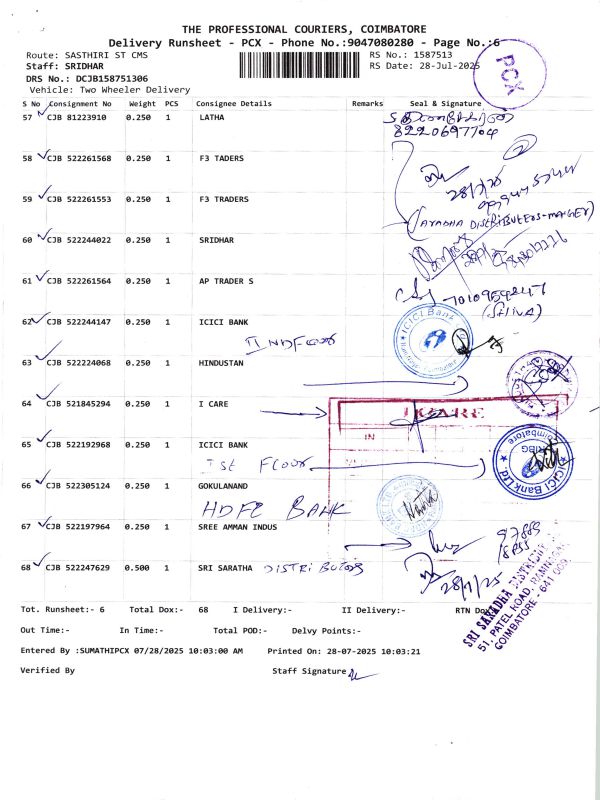 THE PROFESSIONAL COURIERS, COIMBATORE
Delivery Runsheet - PCX - Phone No.:9047080280 - Page No.:6
Route: SASTHIRI ST CMS
RS No.: 1587513
Staff: SRIDHAR
RS Date: 28-Jul-2025
DRS No.: DCJB158751306
Vehicle: Two Wheeler Delivery
PCX
S No Consignment No Weight PCS Consignee Details Remarks Seal & Signature
57 CJB 81223910 0.250 1 LATHA
8220697704
58 CJB 522261568 0.250 1 F3 TADERS
2
28/7/25
59 CJB 522261553 0.250 1 F3 TRADERS
60 CJB 522244022 0.250 1 SRIDHAR
61 CJB 522261564 0.250 1 AP TRADER S
62 CJB 522244147 0.250 1 ICICI BANK
ICICI Bank
IInd Floor
63 CJB 522224068 0.250 1 HINDUSTAN
64 CJB 521845294 0.250 1 I CARE
I CARE
IN
65 CJB 522192968 0.250 1 ICICI BANK
Ist FLOOR
ICICI Bank Ltd.
Coimbatore
66 CJB 522305124 0.250 1 GOKULANAND
HDFC BANK
67 CJB 522197964 0.250 1 SREE AMMAN INDUS
68 CJB 522247629 0.500 1 SRI SARATHA DISTRIBUTORS
28/7/25
SRI SARADHA DISTRIBUTORS
51, PATEL ROAD, RAMNAGAR
COIMBATORE - 641 009
Tot. Runsheet:- 6 Total Dox:- 68 I Delivery:- II Delivery:- RTN Dox
Out Time:- In Time:- Total POD:- Delvy Points:-
Entered By :SUMATHIPCX 07/28/2025 10:03:00 AM Printed On: 28-07-2025 10:03:21
Verified By Staff Signature